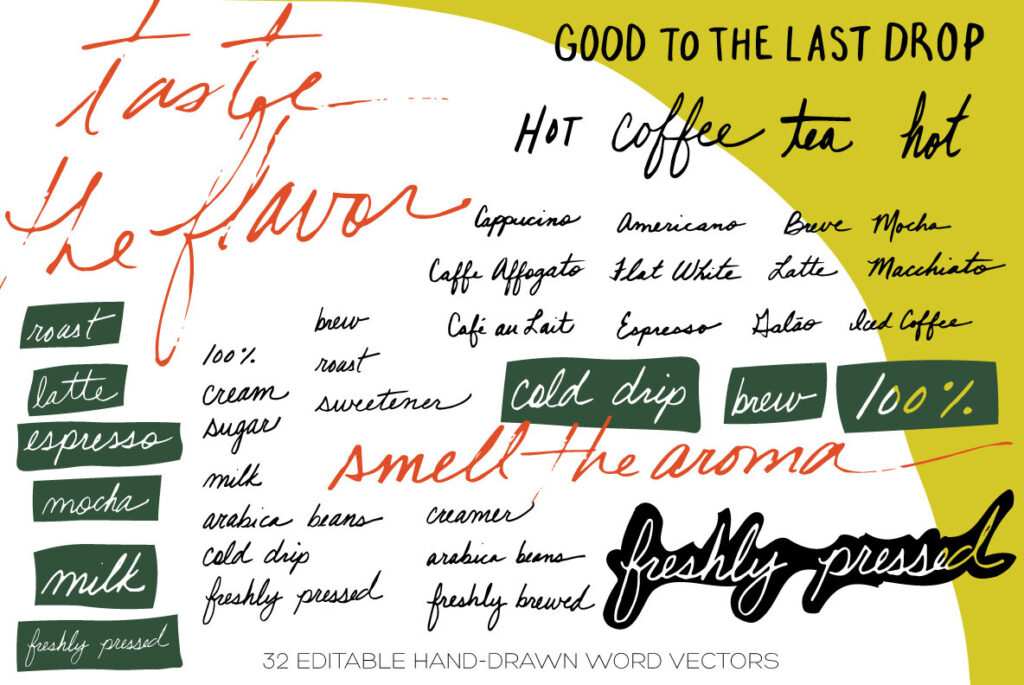 taste
the flavor
GOOD TO THE LAST DROP
HOT coffee tea hot
Cappucino Americano Breve Mocha
Caffe Affogato Flat White Latte Macchiato
Café au Lait Espresso Galão Iced Coffee
roast
latte
espresso
mocha
milk
freshly pressed
100%
cream
sugar
milk
arabica beans
cold drip
freshly pressed
brew
roast
sweetener
cold drip brew 100%
smell the aroma
creamer
arabica beans
freshly brewed
freshly pressed
32 EDITABLE HAND-DRAWN WORD VECTORS